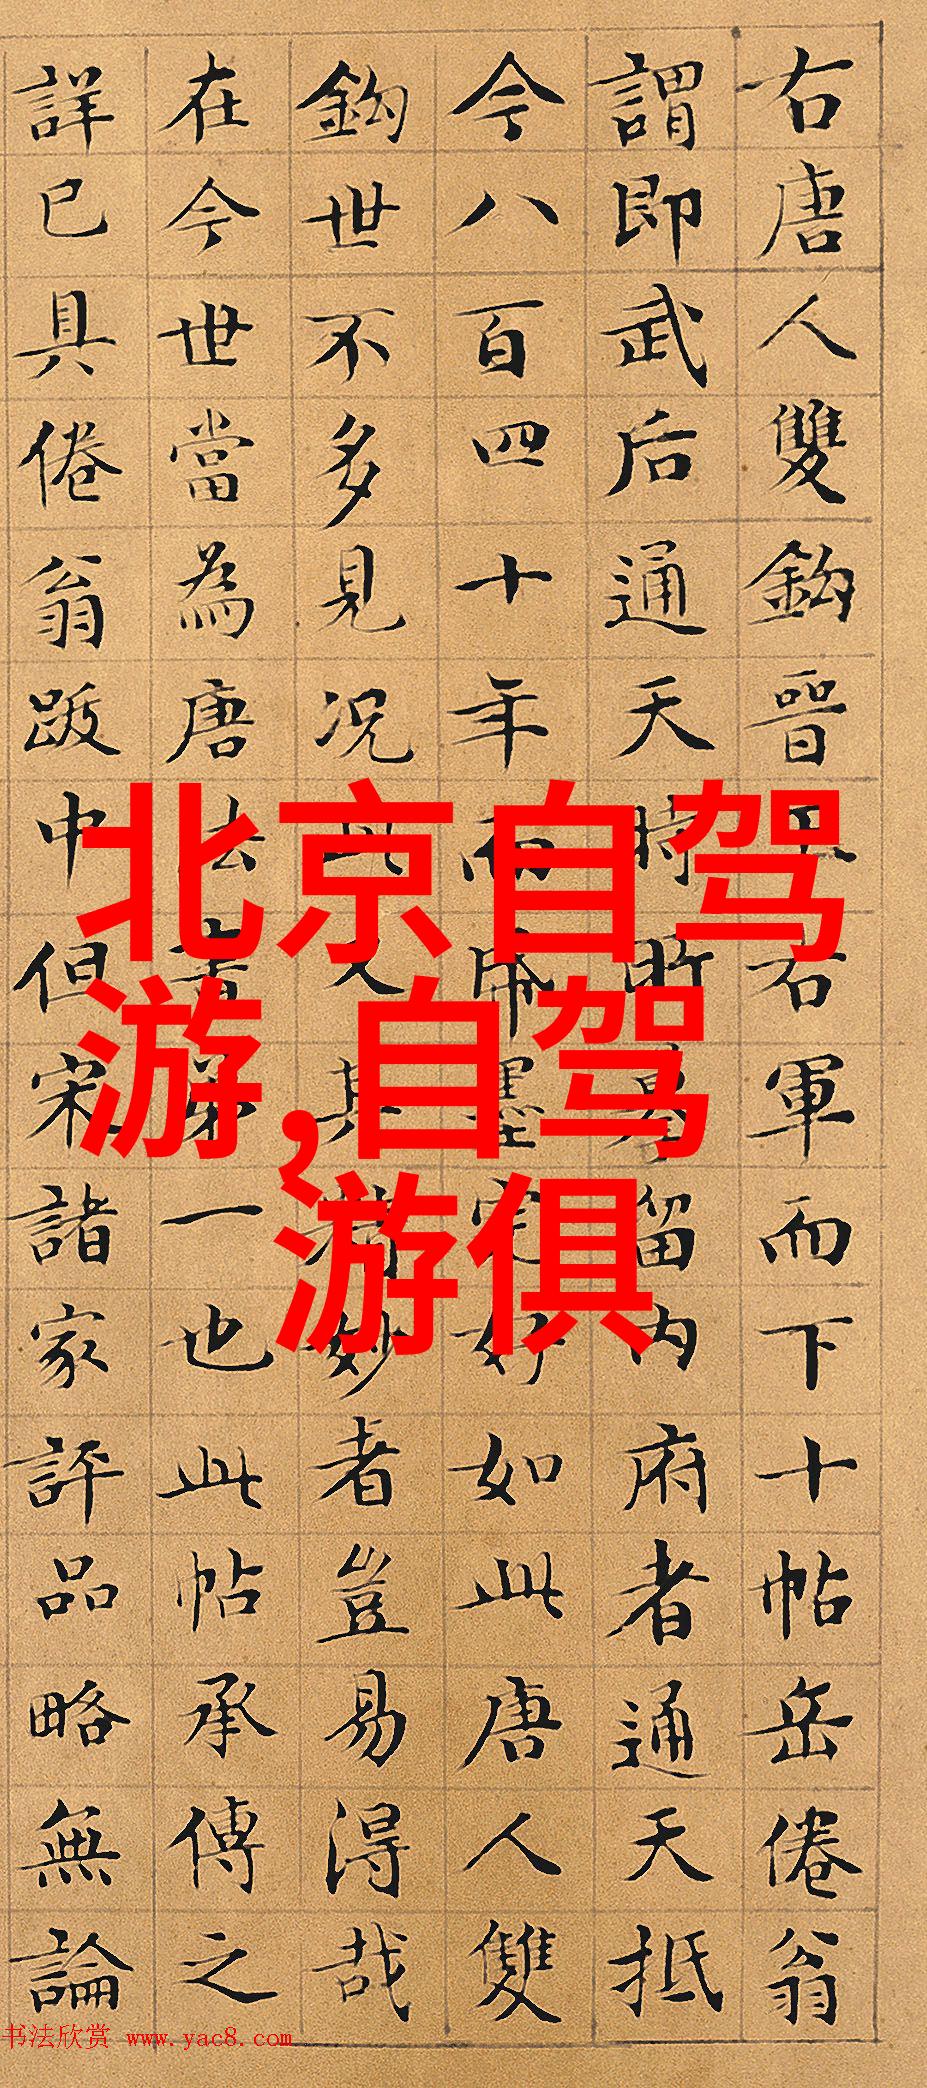 右唐人雙鈎晉王右軍而下十帖岳倦翁
謂即武后通天時所摹留內府者通天抵
今八百四十年而帋墨完好如此唐人雙
鈎世不多見况此又其精妙者豈易得哉
在今世當為唐法書第一也此帖承傳之
詳已具倦翁跋中但宋諸家評品略無論
北京自驾
游,自驾
游俱
书法欣赏 www.yac8.com